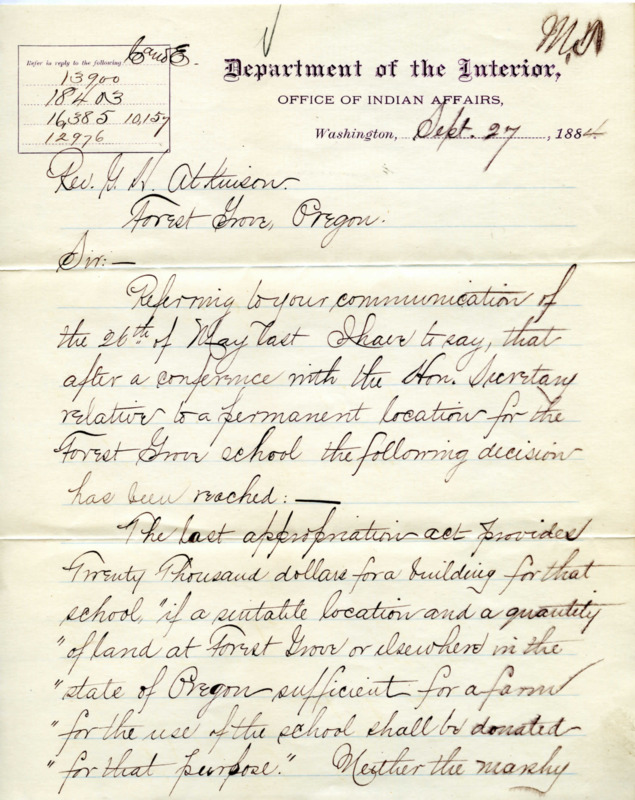 Refer in reply to the following
13900
18403
16,385 10,157
12976
Department of the Interior,
OFFICE OF INDIAN AFFAIRS,
Washington, Sept. 27, 1884.
Rev. G. H. Atkinson.
Forest Grove, Oregon.
Sir:—
Referring to your communication of
the 26th of May last I have to say, that
after a conference with the Hon. Secretary
relative to a permanent location for the
Forest Grove school the following decision
has been reached:—
The last appropriation act provides
Twenty Thousand dollars for a building for that
school, "if a suitable location and a quantity
"of land at Forest Grove or elsewhere in the
"state of Oregon sufficient for a farm
"for the use of the school shall be donated
"for that purpose." Neither the marshy